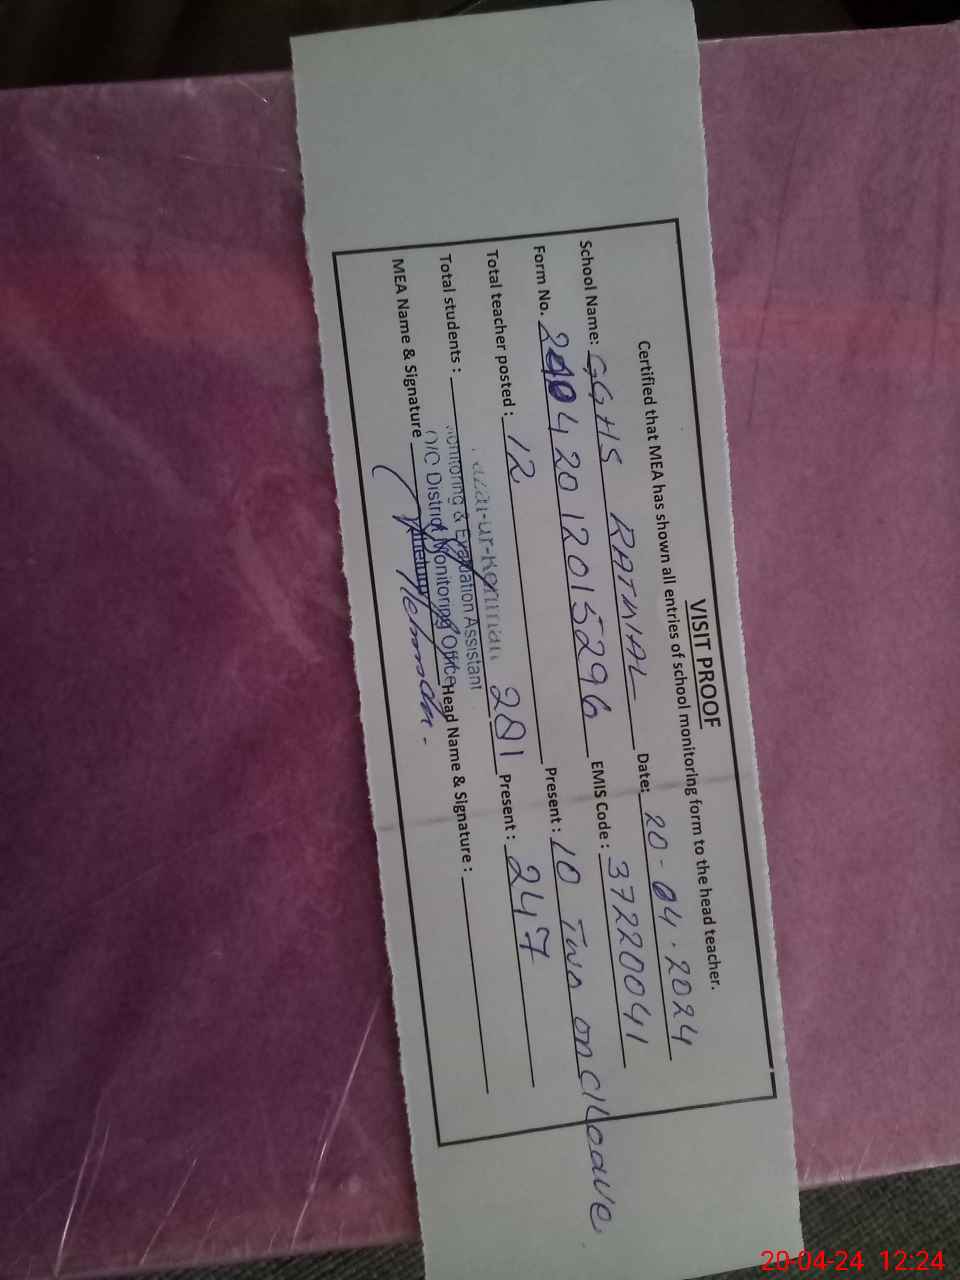 VISIT PROOF
Certified that MEA has shown all entries of school monitoring form to the head teacher.
School Name: GGHS RATWAL Date: 20-04.2024
Form No. 20042012015296 EMIS Code: 37220041
Total teacher posted: 12 Present: 10 Two on C/Leave
Total students: 281 Present: 247
MEA Name & Signature Head Name & Signature:
Monitoring & Evaluation Assistant
O/C District Monitoring Office
20-04-24 12:24